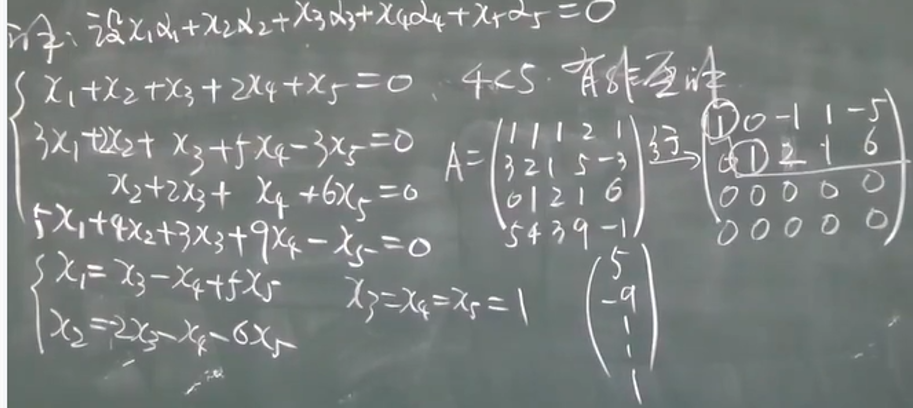 解: 设x₁α₁+x₂α₂+x₃α₃+x₄α₄+x₅α₅=0
{ x₁+x₂+x₃+2x₄+x₅=0 4<5. 有非零解
3x₁+2x₂+x₃+5x₄-3x₅=0
x₂+2x₃+x₄+6x₅=0
5x₁+4x₂+3x₃+9x₄-x₅=0
A=(1 1 1 2 1
3 2 1 5 -3
0 1 2 1 6
5 4 3 9 -1)
行→
(① 0 -1 1 -5
0 ① 2 1 6
0 0 0 0 0
0 0 0 0 0)
{ x₁=x₃-x₄+5x₅
x₂=-2x₃-x₄-6x₅
x₃=x₄=x₅=1
(5
-9
1
1
1)